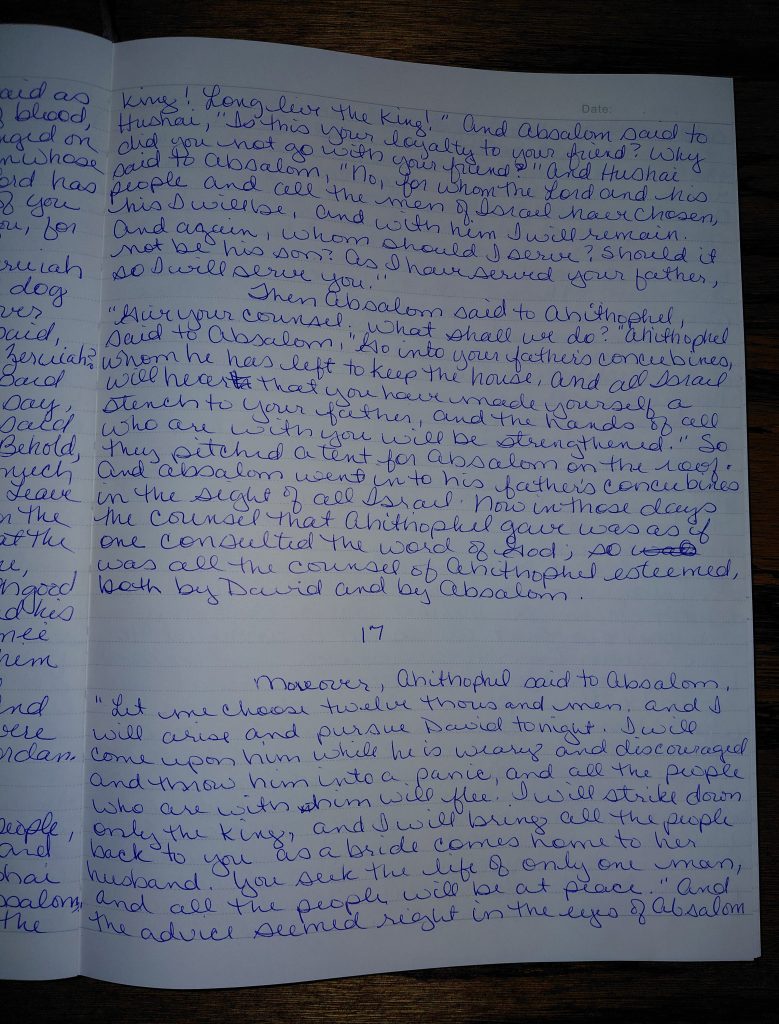 aid as
blood,
nged on
whose
ord has
of you
ou, for
eruiah
dog
ver
said,
Zeruiah?
said
say,
said
Behold,
much
Leave
n the
at the
ngood
d his
hem
And
vere
ordan.
people,
and
shai
bsalom,
the
Date:
King! Long live the King!" And Absalom said to
Hushai, "Is this your loyalty to your friend? Why
did you not go with your friend?" And Hushai
said to Absalom, "No, for whom the Lord and his
people and all the men of Israel have chosen,
his I will be, and with him I will remain.
And again, whom should I serve? Should it
not be his son? As I have served your father,
so I will serve you."
Then Absalom said to Ahithophel,
"Give your counsel. What shall we do?" Ahithophel
said to Absalom, "Go into your father's concubines,
whom he has left to keep the house, and all Israel
will hear that you have made yourself a
stench to your father, and the hands of all
who are with you will be strengthened." So
they pitched a tent for Absalom on the roof.
And Absalom went in to his father's concubines
in the sight of all Israel. Now in those days
the counsel that Ahithophel gave was as if
one consulted the word of God; so was
was all the counsel of Ahithophel esteemed,
both by David and by Absalom.
17
Moreover, Ahithophel said to Absalom,
"Let me choose twelve thousand men, and I
will arise and pursue David tonight. I will
come upon him while he is weary and discouraged
and throw him into a panic, and all the people
who are with him will flee. I will strike down
only the King, and I will bring all the people
back to you as a bride comes home to her
husband. You seek the life of only one man,
and all the people will be at peace." And
the advice seemed right in the eyes of Absalom